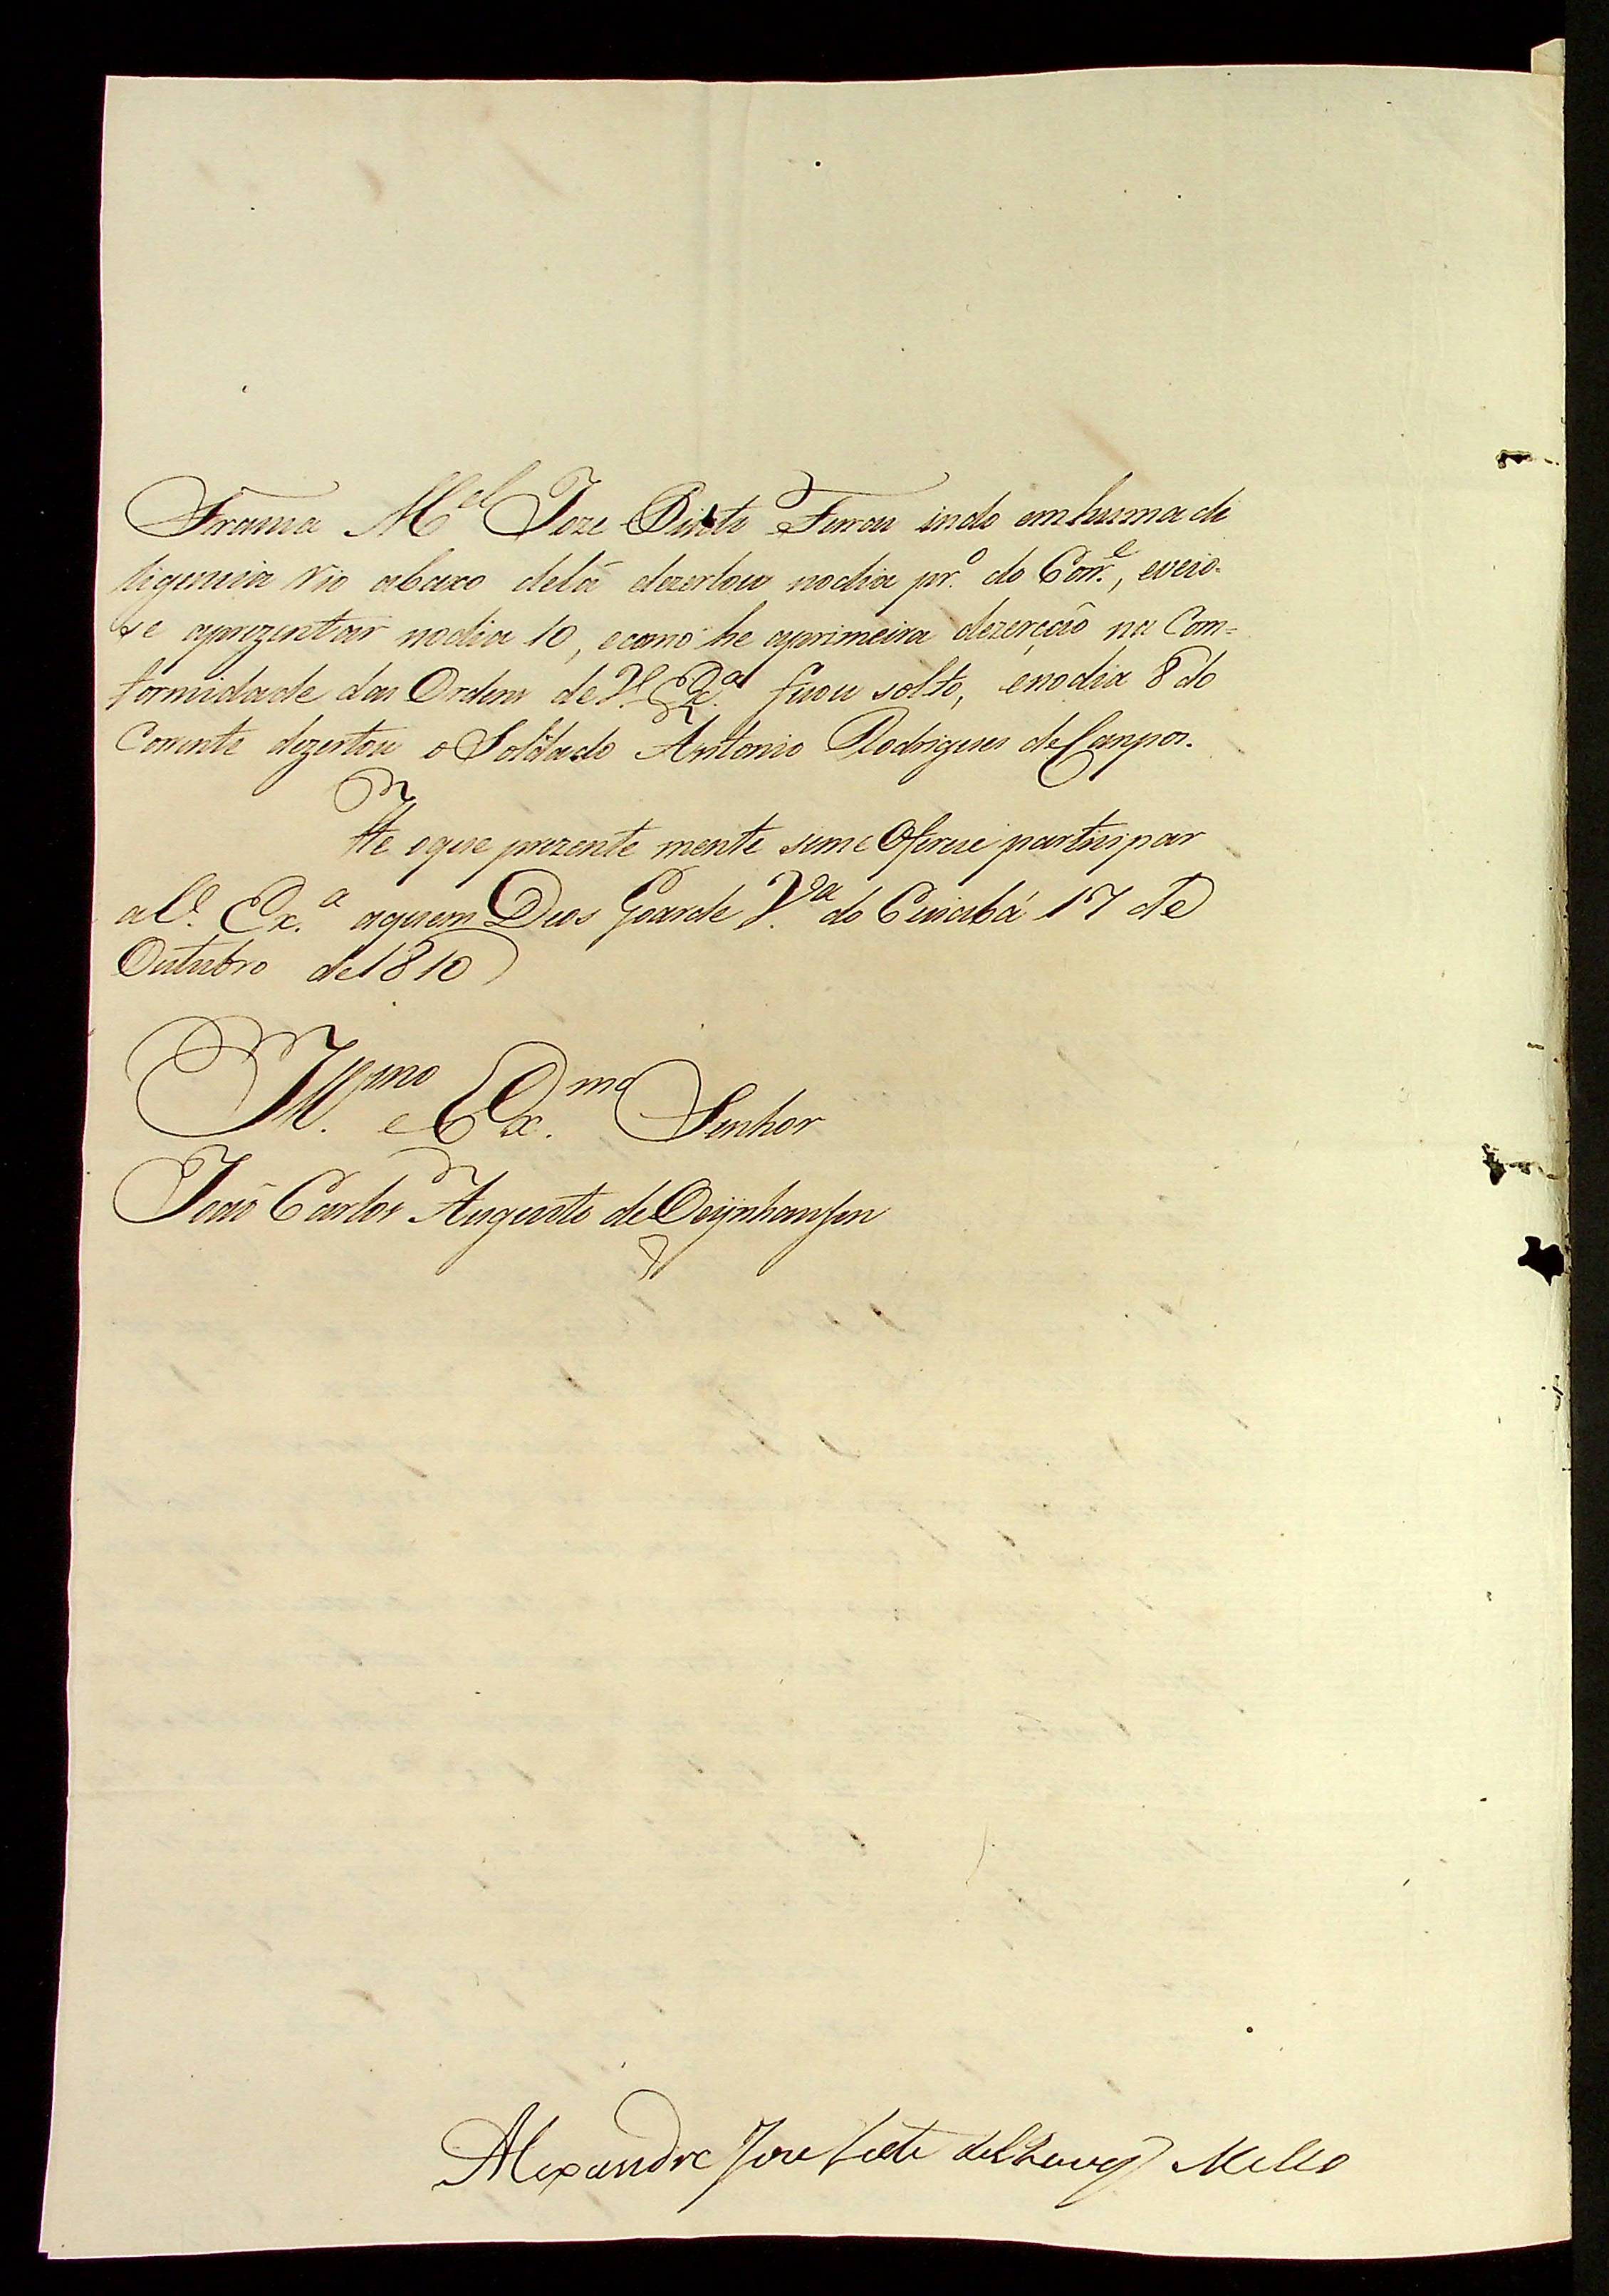 Franca M.el Joze Pinto Furou indo em huma di
ligencia rio abaxo delá dezertou nodia pr.º do Corr.e, eveio-
se aprezentar nodia 10, ecomo he aprimeira dezerção na Com=
formidade das Ordens de V. Ex.a ficou solto, enodia 8 do
Corrente dezertou o Soldado Antonio Rodrigues de Canpos.
He oque prezente mente seme Oferece partisipar
a V. Ex.a aquem Deos Goarde V.a do Cuiabá 17 de
Outubro de 1810
Ill.mo e Ex.mo Senhor
João Carlos Augusto de Oeynhausen
Alexandre Joze Leite de Chaves Mello